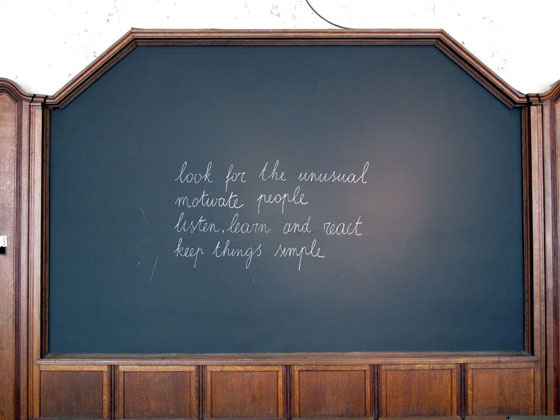 look for the unusual
motivate people
listen, learn and react
keep things simple